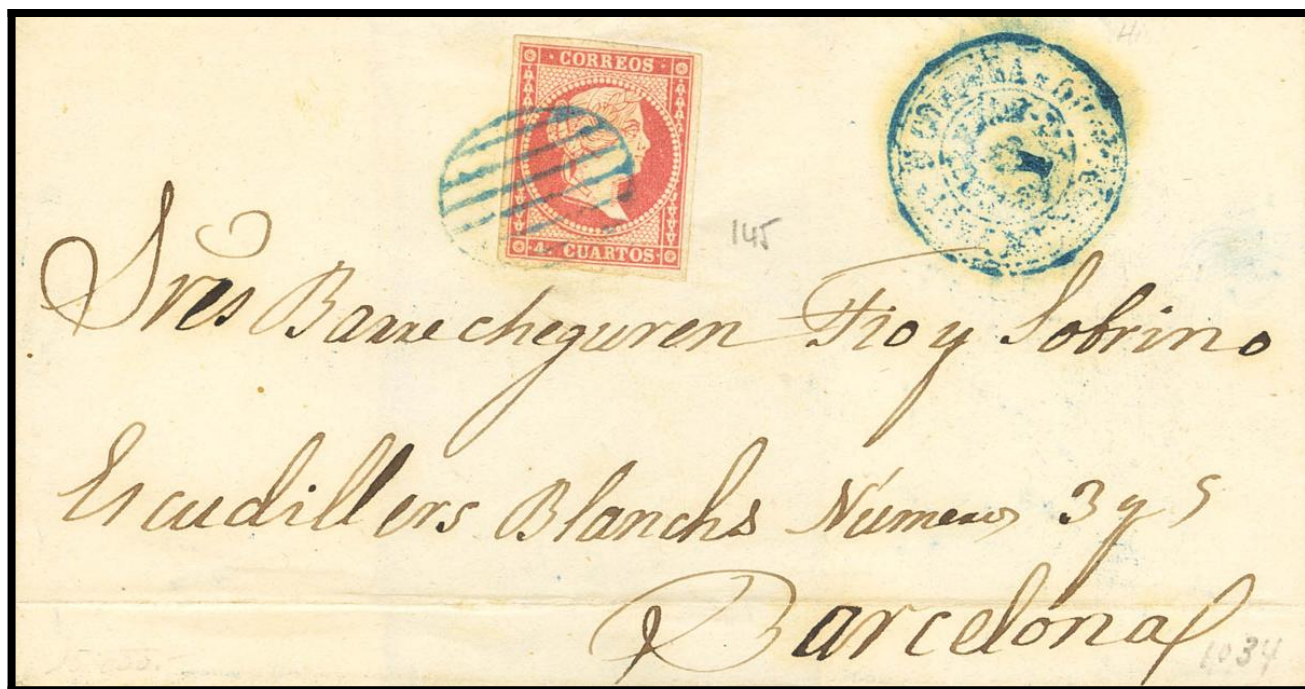 CORREOS
4. CUARTOS.
145
Sres Barrecheguren Tio y Sobrino
Escudillers Blanchs Numeros 3 y 5
Barcelona
1034